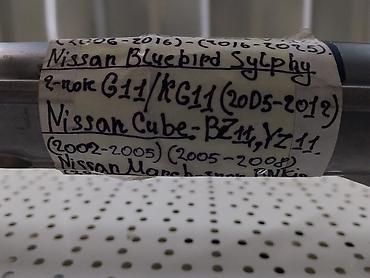 (2006-2016)-(2016-2025).
Nissan Bluebird Sylphy
2-пок G11/KG11 (2005-2012)
Nissan Cube-BZ11, YZ11
(2002-2005) (2005-2008)
Nissan March